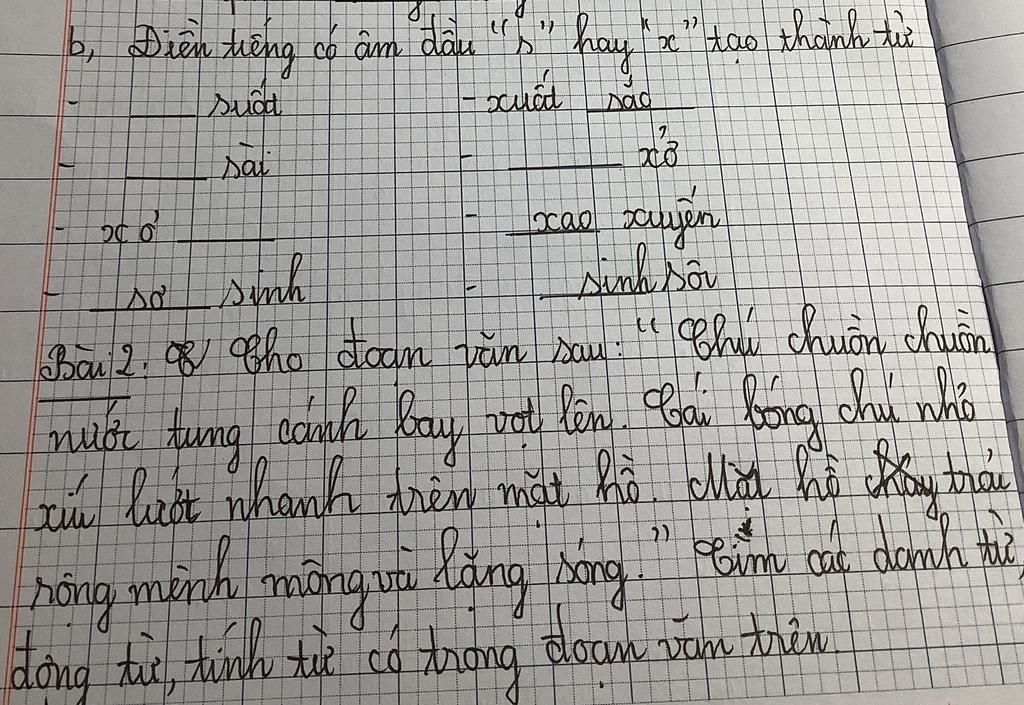 b, Điền tiếng có âm đầu "s" hay "x" tạo thành từ
- ____ suốt - xuất sắc
- ____ sài - ____ xở
- xơ ____ - xao xuyến
- sơ sinh - sinh sôi
Bài 2: Cho đoạn văn sau: "Chú chuồn chuồn
nước tung cánh bay vọt lên. Cái bóng chú nhỏ
xíu lướt nhanh trên mặt hồ. Mặt hồ trải
rộng mênh mông và lặng sóng." Tìm các danh từ,
động từ, tính từ có trong đoạn văn trên.